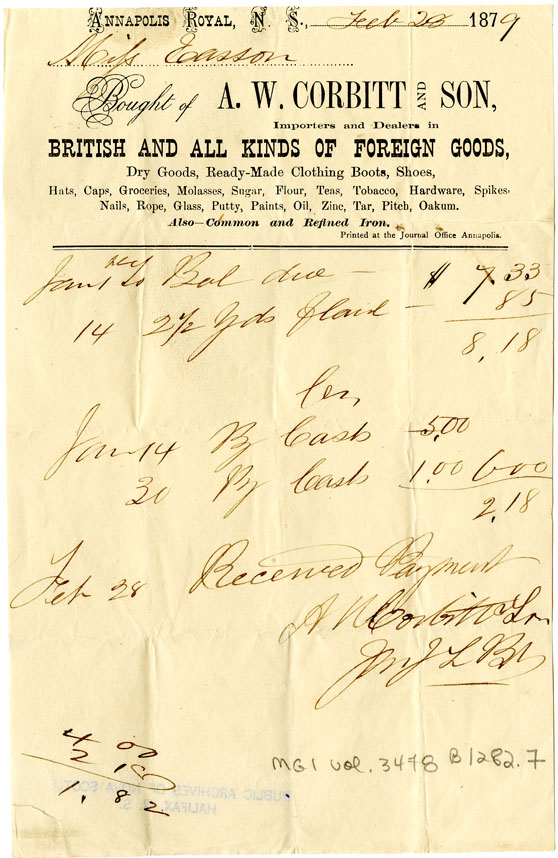 Annapolis Royal, N. S., Feb 28 1879
Miss Easson
Bought of A. W. CORBITT AND SON,
Importers and Dealers in
BRITISH AND ALL KINDS OF FOREIGN GOODS,
Dry Goods, Ready-Made Clothing Boots, Shoes,
Hats, Caps, Groceries, Molasses, Sugar, Flour, Teas, Tobacco, Hardware, Spikes,
Nails, Rope, Glass, Putty, Paints, Oil, Zinc, Tar, Pitch, Oakum.
Also—Common and Refined Iron.
Printed at the Journal Office Annapolis.
Jan 1 To Bal due — $ 7 33
14 2½ Yds Plaid — 85
8.18
Cr,
Jan 14 By Cash 5.00
30 By Cash 1.00 6 00
2.18
Feb 28 Received Payment
A W Corbitt & Son
4 00
2 .18
1. 82
MG1 vol. 3478 B1282.7
PUBLIC ARCHIVES OF NOVA SCOTIA
HALIFAX, N. S.